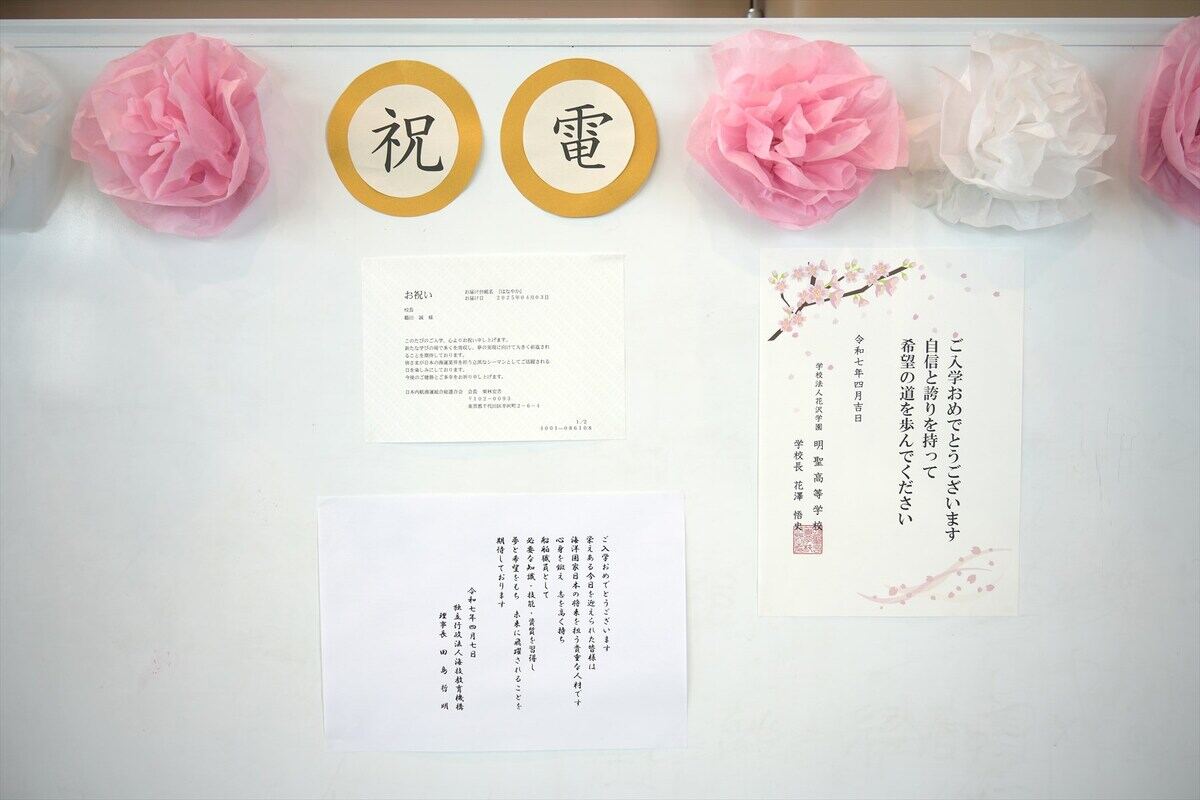 祝電
お祝い
お届け台紙名 『はなやか』
お届け日 2025年04月03日
校長
様
このたびのご入学、心よりお祝い申し上げます。
新たな学びの場で多くを吸収し、夢の実現に向けて大きく前進され
ることを期待しております。
皆さまが日本の海運業界を担う立派なシーマンとしてご活躍される
日を楽しみにしております。
今後のご健勝とご多幸をお祈り申し上げます。
日本内航海運組合総連合会 会長 栗林宏吉
〒102-0093
東京都千代田区平河町2-6-4
1/2
1001-086108
ご入学おめでとうございます
自信と誇りを持って
希望の道を歩んでください
令和七年四月吉日
学校法人花沢学園 明聖高等学校
学校長 花澤 悟史
ご入学おめでとうございます
栄えある今日を迎えられた皆様は
海洋国家日本の将来を担う貴重な人材です
心身を鍛え 志を高く持ち
船舶職員として
必要な知識・技能・資質を習得し
夢と希望をもち 未来に飛躍されることを
期待しております
令和七年四月七日
独立行政法人海技教育機構
理事長 田島哲明